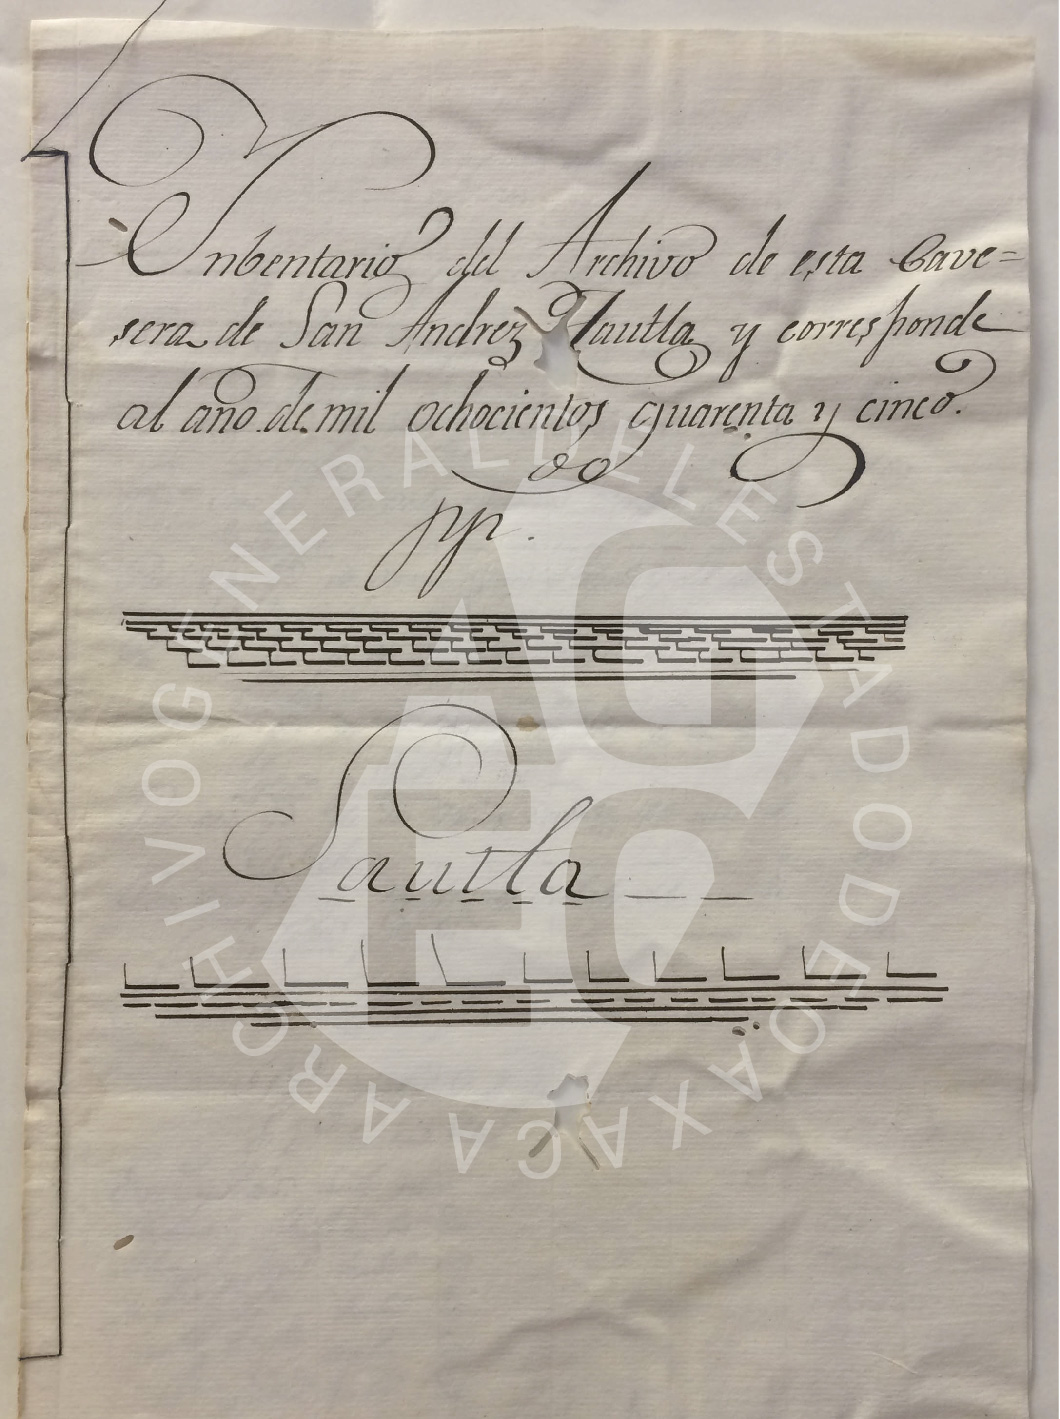 Ynbentario del Archivo de esta Cave=
sera de San Andrez Zautla y corresponde
al año de mil ochocientos quarenta y cinco.
Sautla
ARCHIVO GENERAL DEL ESTADO DE OAXACA
AGEO